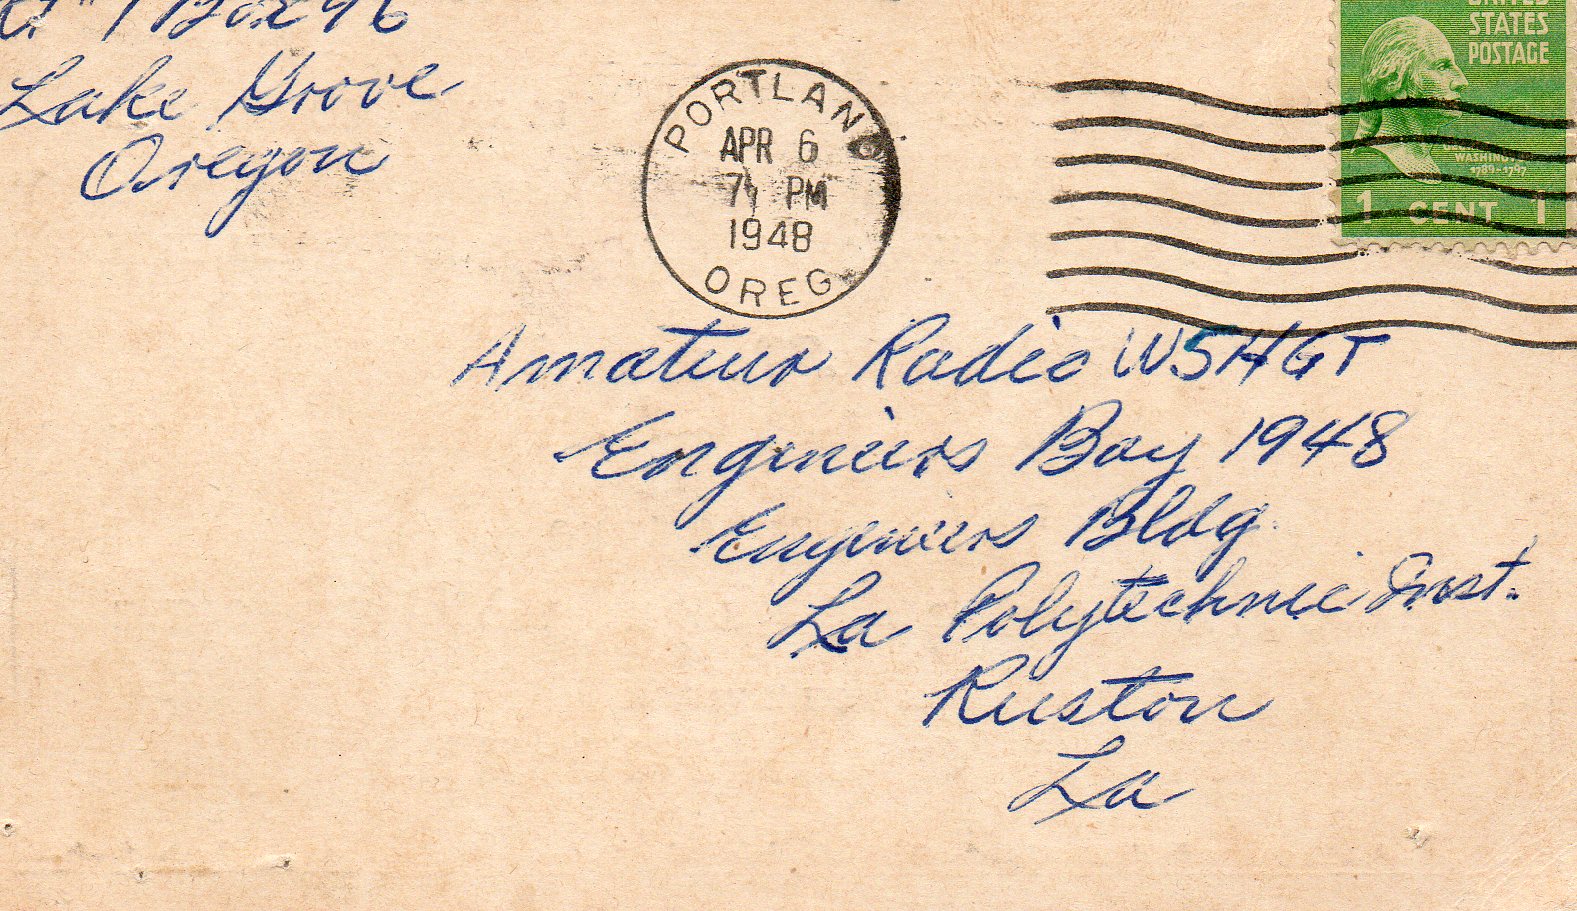 1 Box 296
Lake Grove
Oregon
PORTLAND
APR 6
7 PM
1948
OREG
UNITED
STATES
POSTAGE
WASHINGTON
1789-1797
1 CENT 1
Amateur Radio W5HGT
Engeniers Day 1948
Engeniers Bldg
La Polytechnic Inst.
Ruston
La